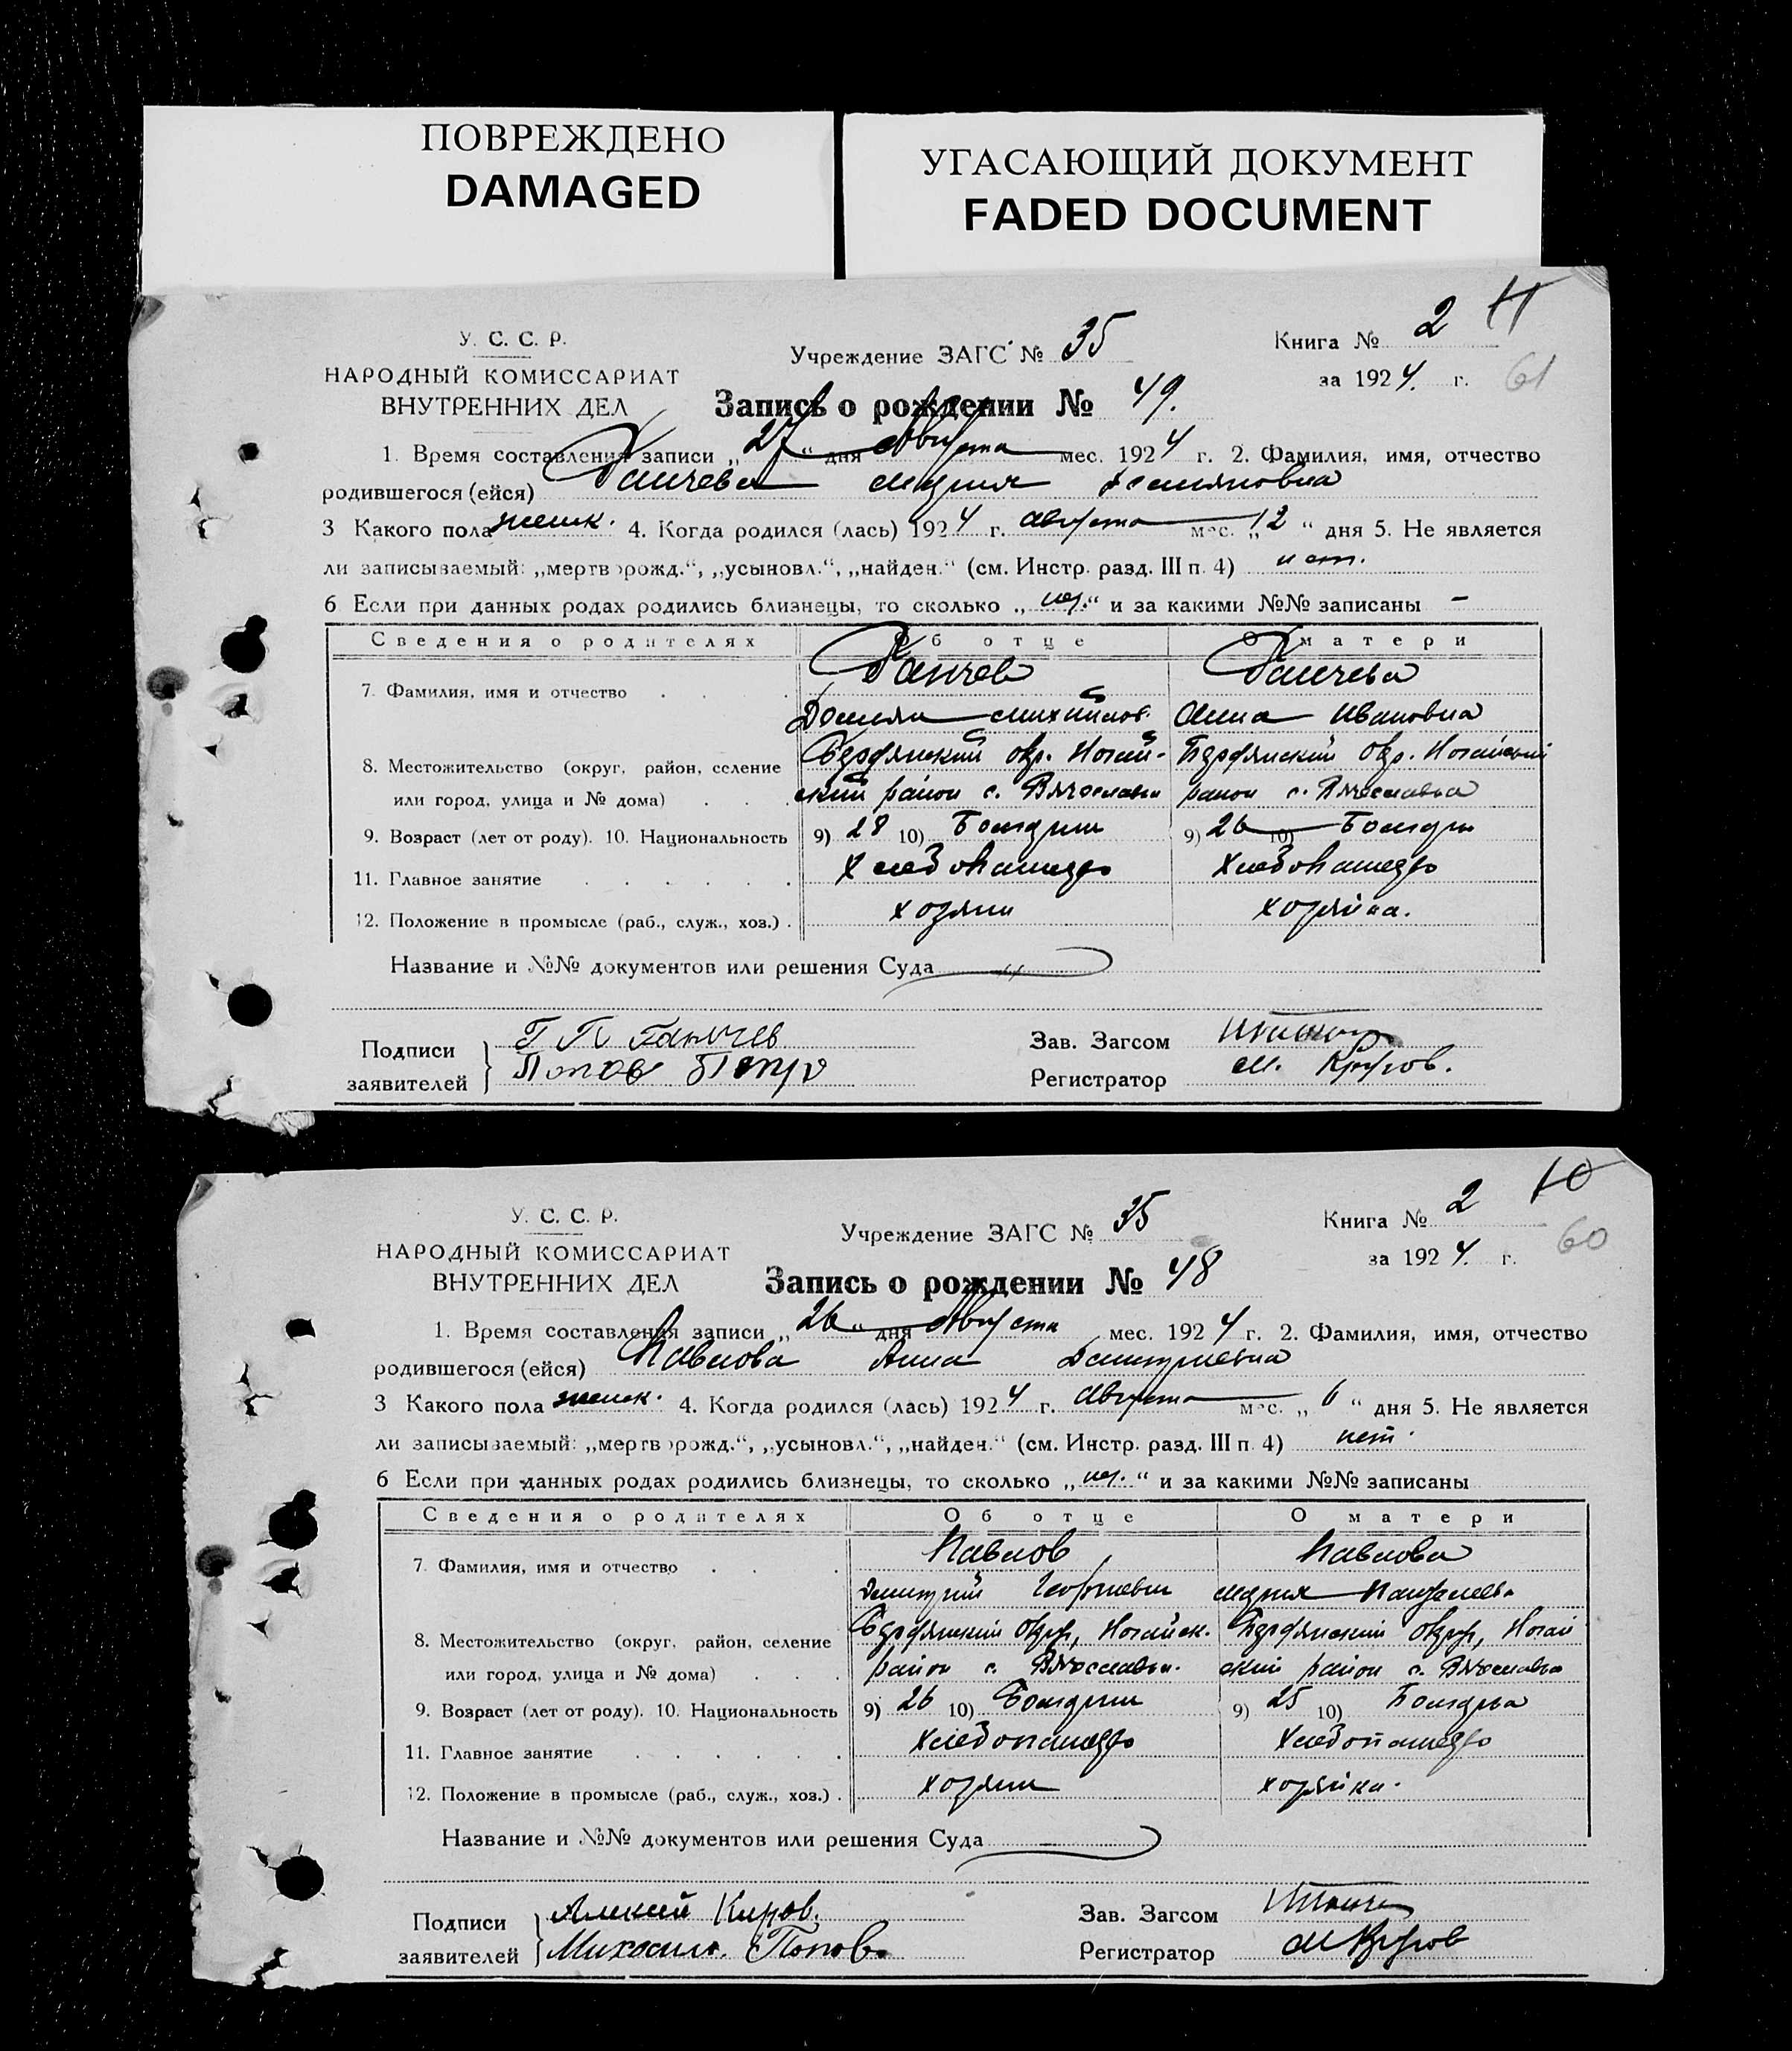 ПОВРЕЖДЕНО
DAMAGED
УГАСАЮЩИЙ ДОКУМЕНТ
FADED DOCUMENT
У. С. С. Р.
НАРОДНЫЙ КОМИССАРИАТ
ВНУТРЕННИХ ДЕЛ
Учреждение ЗАГС № 35
Книга № 2
за 1924 г. 61
Запись о рождении № 49.
1. Время составления записи „27“ дня Августа мес. 1924 г. 2. Фамилия, имя, отчество
родившегося (ейся) Ганчева Мария
3 Какого пола женск. 4. Когда родился (лась) 1924 г. августа мес. „12“ дня 5. Не является
ли записываемый: „мертворожд.“, „усыновл.“, „найден.“ (см. Инстр. разд. III п. 4) нет.
6 Если при данных родах родились близнецы, то сколько „нет.“ и за какими №№ записаны –
Сведения о родителях Об отце О матери
7. Фамилия, имя и отчество Ганчев Ганчева
Михайлов. Анна Ивановна
8. Местожительство (округ, район, селение Бердянский окр. Ногай- Бердянский окр. Ногайский
или город, улица и № дома) ский район с. Вячеславка район с. Вячеславка
9. Возраст (лет от роду). 10. Национальность 9) 28 10) Болгарин 9) 26 10) Болгарк
11. Главное занятие Хлебопашедво Хлебопашедво
12. Положение в промысле (раб., служ., хоз.) хозяин хозяйка.
Название и №№ документов или решения Суда
Подписи
заявителей
Г П Ганчев
Попов Петр
Зав. Загсом
Регистратор М. Кругов.
У. С. С. Р.
НАРОДНЫЙ КОМИССАРИАТ
ВНУТРЕННИХ ДЕЛ
Учреждение ЗАГС № 35
Книга № 2 10
за 1924 г. 60
Запись о рождении № 48
1. Время составления записи „26“ дня Августа мес. 1924 г. 2. Фамилия, имя, отчество
родившегося (ейся) Павлова Анна Дмитриевна
3 Какого пола женск. 4. Когда родился (лась) 1924 г. августа мес. „6“ дня 5. Не является
ли записываемый: „мертворожд.“, „усыновл.“, „найден.“ (см. Инстр. разд. III п. 4) нет.
6 Если при данных родах родились близнецы, то сколько „нет.“ и за какими №№ записаны
Сведения о родителях Об отце О матери
7. Фамилия, имя и отчество Павлов Павлова
Дмитрий Георгиевич Мария
8. Местожительство (округ, район, селение Бердянский округ, Ногайск. Бердянский округ, Ногай
или город, улица и № дома) район с. Вячеславка. ский район с. Вячеславка
9. Возраст (лет от роду). 10. Национальность 9) 26 10) Болгарин 9) 25 10) Болгарка
11. Главное занятие Хлебопашедво Хлебопашедво
12. Положение в промысле (раб., служ., хоз.) хозяин хозяйка.
Название и №№ документов или решения Суда
Подписи
заявителей
Алексей Киров.
Михаил Попов.
Зав. Загсом
Регистратор М Кругов